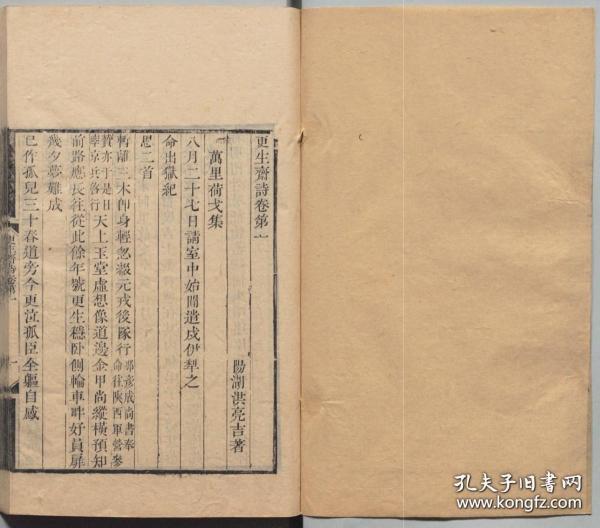 更生齋詩卷第一
陽湖洪亮吉著
萬里荷戈集
八月二十七日請室中始聞遣戍伊犂之
命出獄紀
恩二首
暫離三木卽身輕忽綴元戎後隊行那彥成尚書奉命往陝西軍營參
贊亦于是日率京兵啓行天上玉堂虛想像道邊金甲尚縱橫預知
前路應長往從此餘年號更生穩卧側輪車畔好員扉
幾夕夢難成
已作孤兒三十春道旁今更泣孤臣全軀自感
更生齋詩卷第一
一
孔夫子旧书网
www.kongfz.com